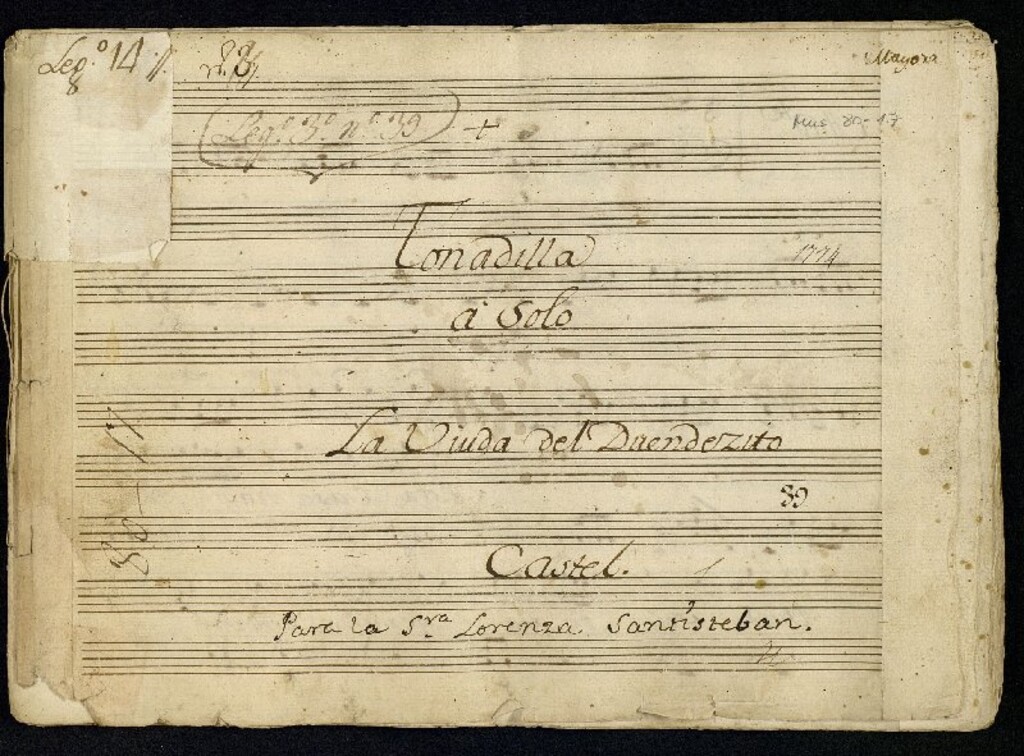 Leg.º 14
8
n.º 8
Mayora
Leg.º 3.º n.º 39
Mus 80-17
Tonadilla
1774
à Solo
La Viuda del Duendezito
80-17
89
Castel.
Para la S.ra Lorenza Santisteban.